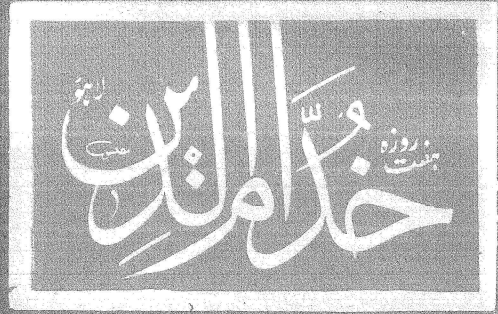 ہفت روزہ
خُدَّامُ الدِّین
لاہور